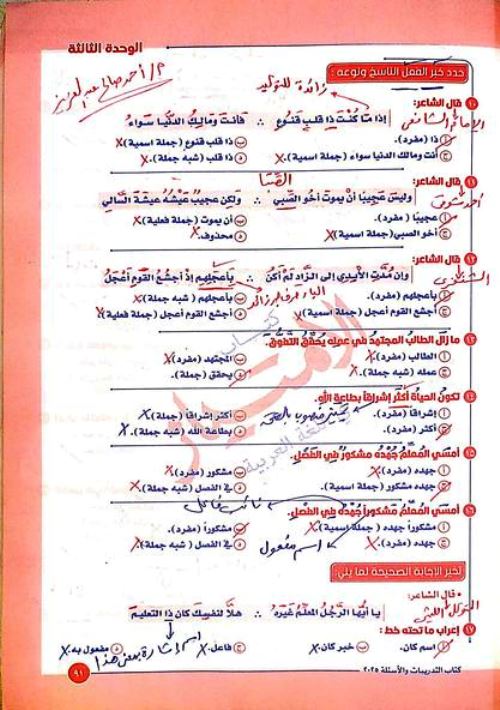 الوحدة الثالثة
م/ أحمد صالح عبد العزيز
حدد خبر الفعل الناسخ ونوعه :
زائدة للتوكيد
١٠ قال الشاعر:
الإمام الشافعي
إذا ما كُنتَ ذا قلبٍ قنوعٍ ∴ فأنتَ ومالكُ الدنيا سواءُ
أ ذا (مفرد).
ب ذا قلب قنوع (جملة اسمية).x
ج أنت ومالك الدنيا سواء (جملة اسمية).x
د ذا قلب (شبه جملة).x
١١ قال الشاعر:
أحمد شوقي
وليسَ عجيبًا أنْ يموتَ أخو الصبي ∴ ولكن عجيبٌ عيشُه عيشةَ السالي
أ عجيبًا (مفرد).
ب أن يموت (جملة فعلية).x
ج أخو الصبي (جملة اسمية).x
د محذوف.x
١٢ قال الشاعر:
الشنفرى
وإن مُدَّتِ الأيدي إلى الزاد لم أكنْ ∴ بأعجلِهم إذ أجشعُ القومِ أعجلُ
الباء حرف جر زائد
أ بأعجلهم (مفرد).
ب بأعجلهم (شبه جملة).x
ج أجشع القوم أعجل (جملة اسمية).x
د أجشع القوم أعجل (جملة فعلية).x
١٣ ما زال الطالب المجتهدُ في عمله يُحقِّقُ التفوُّقَ.
أ الطالب (مفرد).x
ب المجتهد (مفرد).x
ج عمله (شبه جملة).x
د يحقق (جملة).
١٤ تكونُ الحياةُ أكثرَ إشراقًا بطاعةِ اللهِ.
أ إشراقًا (مفرد).
ب أكثر إشراقًا (جملة).x
ج أكثر (مفرد).
د بطاعة الله (شبه جملة).x
١٥ أمسَى المُعلِّمُ جُهدُه مشكورٌ في الفَصْلِ.
أ جهده (مفرد).x
ب مشكور (مفرد).x
ج جهده مشكور (جملة اسمية).
د في الفصل (شبه جملة).x
نائب فاعل
١٦ أمسَى المُعلِّمُ مشكورًا جُهدُه في الفصلِ.
أ مشكورًا جهده (جملة اسمية).x
ب مشكورًا (مفرد).
ج جهده (مفرد).x
د في الفصل (شبه جملة).x
اسم مفعول
تخير الإجابة الصحيحة لما يلي:
• قال الشاعر:
يا أيُّها الرَّجُلُ المعلِّمُ غَيْرَهُ ∴ هلَّا لنفسِكَ كان ذا التعليمُ
١٧ إعراب ما تحته خط :
أ اسم كان.
ب خبر كان.x
ج فاعل.x
د مفعول به.x
اسم إشارة بمعنى هذا
كتاب التدريبات والأسئلة ٢٠٢٥
٩١